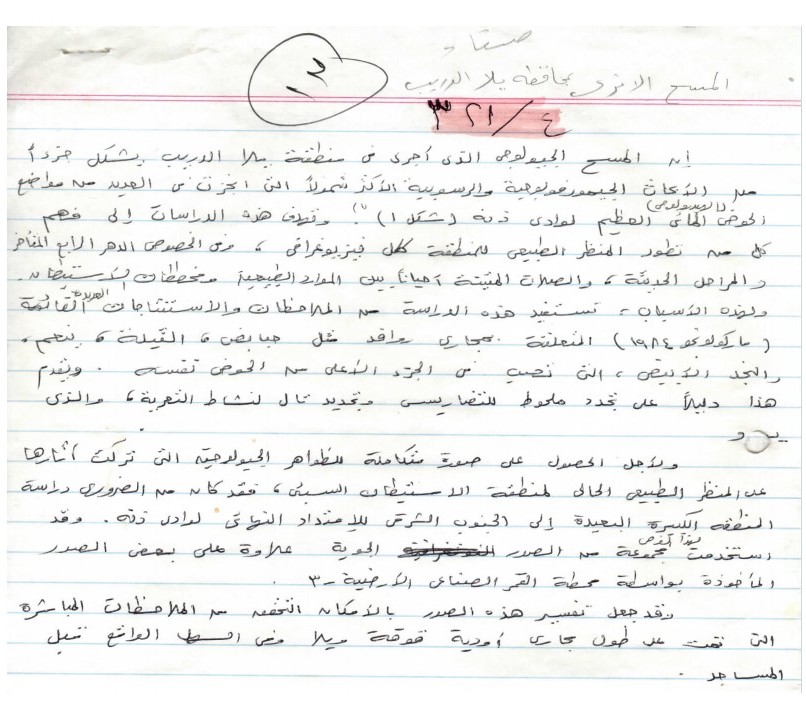 صنعاء
١٢
المسح الاثري بمحافظة يلا الدريب
٤ / ٢١ ٣
إن المسح الجيولوجي الذي أجري في منطقة يلا الدريب يشكل جزءاً
من الأبحاث الجيومورفولوجية والرسوبية الأكثر شمولاً التي انجزت في العديد من مواضع
الحوض المائي (الهيدرولوجي) العظيم لوادي ذنه (شكل ١) (١). وتهدف هذه الدراسات إلى فهم
كل من تطور المنظر الطبيعي للمنطقة ككل فيزيوغرافي، وفي الخصوص الدهر الرابع المتأخر
والمراحل الحديثة، والصلات المتينة أحياناً بين الموارد الطبيعية ومخططات الأستيطان.
ولهذه الأسباب، تستفيد هذه الدراسة من الملاحظات والاستنتاجات العديدة القائمة
(ماركولونجو ١٩٨٤) المتعلقة بمجاري روافد مثل حبابض، القيلة، ينعم،
والنجد الأبيض، التي تصب في الجزء الأعلى من الحوض نفسه. ويقدم
هذا دليلاً على تجدد ملحوظ للتضاريس وتجديد تال لنشاط التعرية، والذي
يبدو
ولأجل الحصول على صورة متكاملة للظواهر الجيولوجية التي تركت أثارها
على المنظر الطبيعي الحالي لمنطقة الاستيطان السبئي، فقد كان من الضروري دراسة
المنطقة الكبيرة البعيدة إلى الجنوب الشرقي للإمتداد النهائي لوادي ذنه. وقد
استخدمت لهذا الغرض مجموعة من الصور الجوية علاوة على بعض الصور
المأخوذة بواسطة محطة القمر الصناعي الأرضية -٣.
وقد جعل تفسير هذه الصور بالأمكان التحقق من الملاحظات المباشرة
التي تمت على طول مجاري أودية قوقة ويلا وفي الواقع قبيل
المساجد.